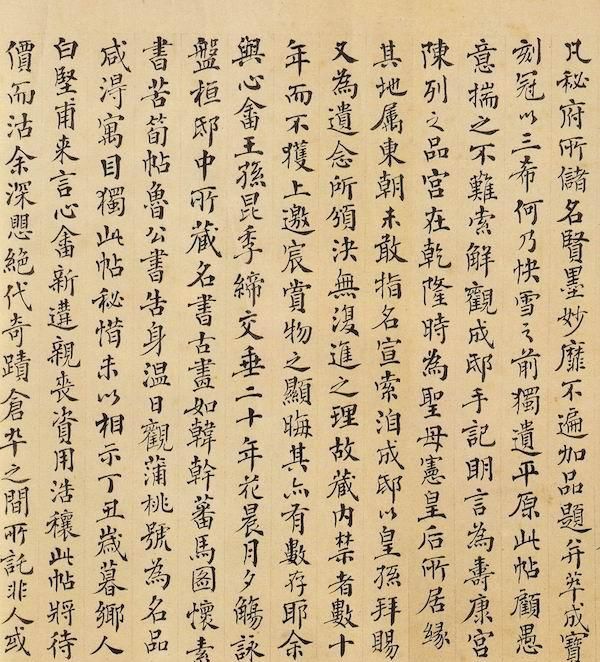 凡秘府所儲名賢墨妙靡不遍加品題并萃成寶
刻冠以三希何乃快雪之前獨遺平原此帖顧愚
意揣之不難索解觀成邸手記明言為壽康宮
陳列之品宮在乾隆時為聖母憲皇后所居緣
其地属東朝未敢指名宣索洎成邸以皇孫拜賜
又為遺念所頒決無復進之理故藏内禁者數十
年而不獲上邀宸賞物之顯晦其亦有數存耶余
與心畬王孫昆季締交垂二十年花晨月夕觴詠
盤桓邸中所藏名書古畫如韓幹蕃馬圖懷素
書苦筍帖魯公書告身溫日觀蒲桃號為名品
咸得寓目獨此帖秘惜未以相示丁丑歲暮鄉人
白堅甫来言心畬新遘親喪資用浩穰此帖將待
價而沽余深愳絶代奇蹟倉卒之間所託非人或